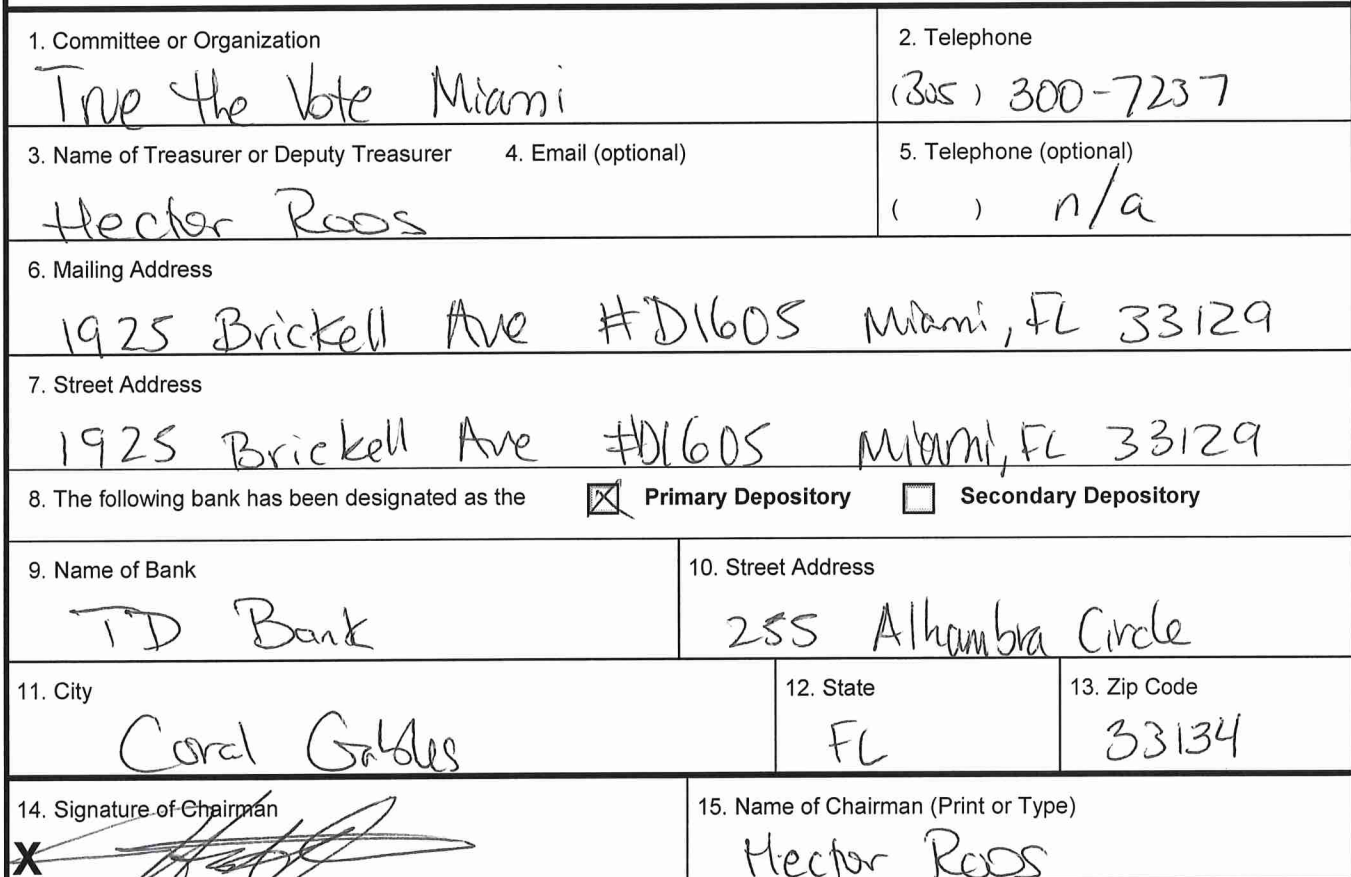 1. Committee or Organization
True the Vote Miami
2. Telephone
(305) 300-7237
3. Name of Treasurer or Deputy Treasurer 4. Email (optional)
Hector Roos
5. Telephone (optional)
( ) n/a
6. Mailing Address
1925 Brickell Ave #D1605 Miami, FL 33129
7. Street Address
1925 Brickell Ave #D1605 Miami, FL 33129
8. The following bank has been designated as the ☒ Primary Depository ☐ Secondary Depository
9. Name of Bank
TD Bank
10. Street Address
255 Alhambra Circle
11. City
Coral Gables
12. State
FL
13. Zip Code
33134
14. Signature of Chairman
X
15. Name of Chairman (Print or Type)
Hector Roos